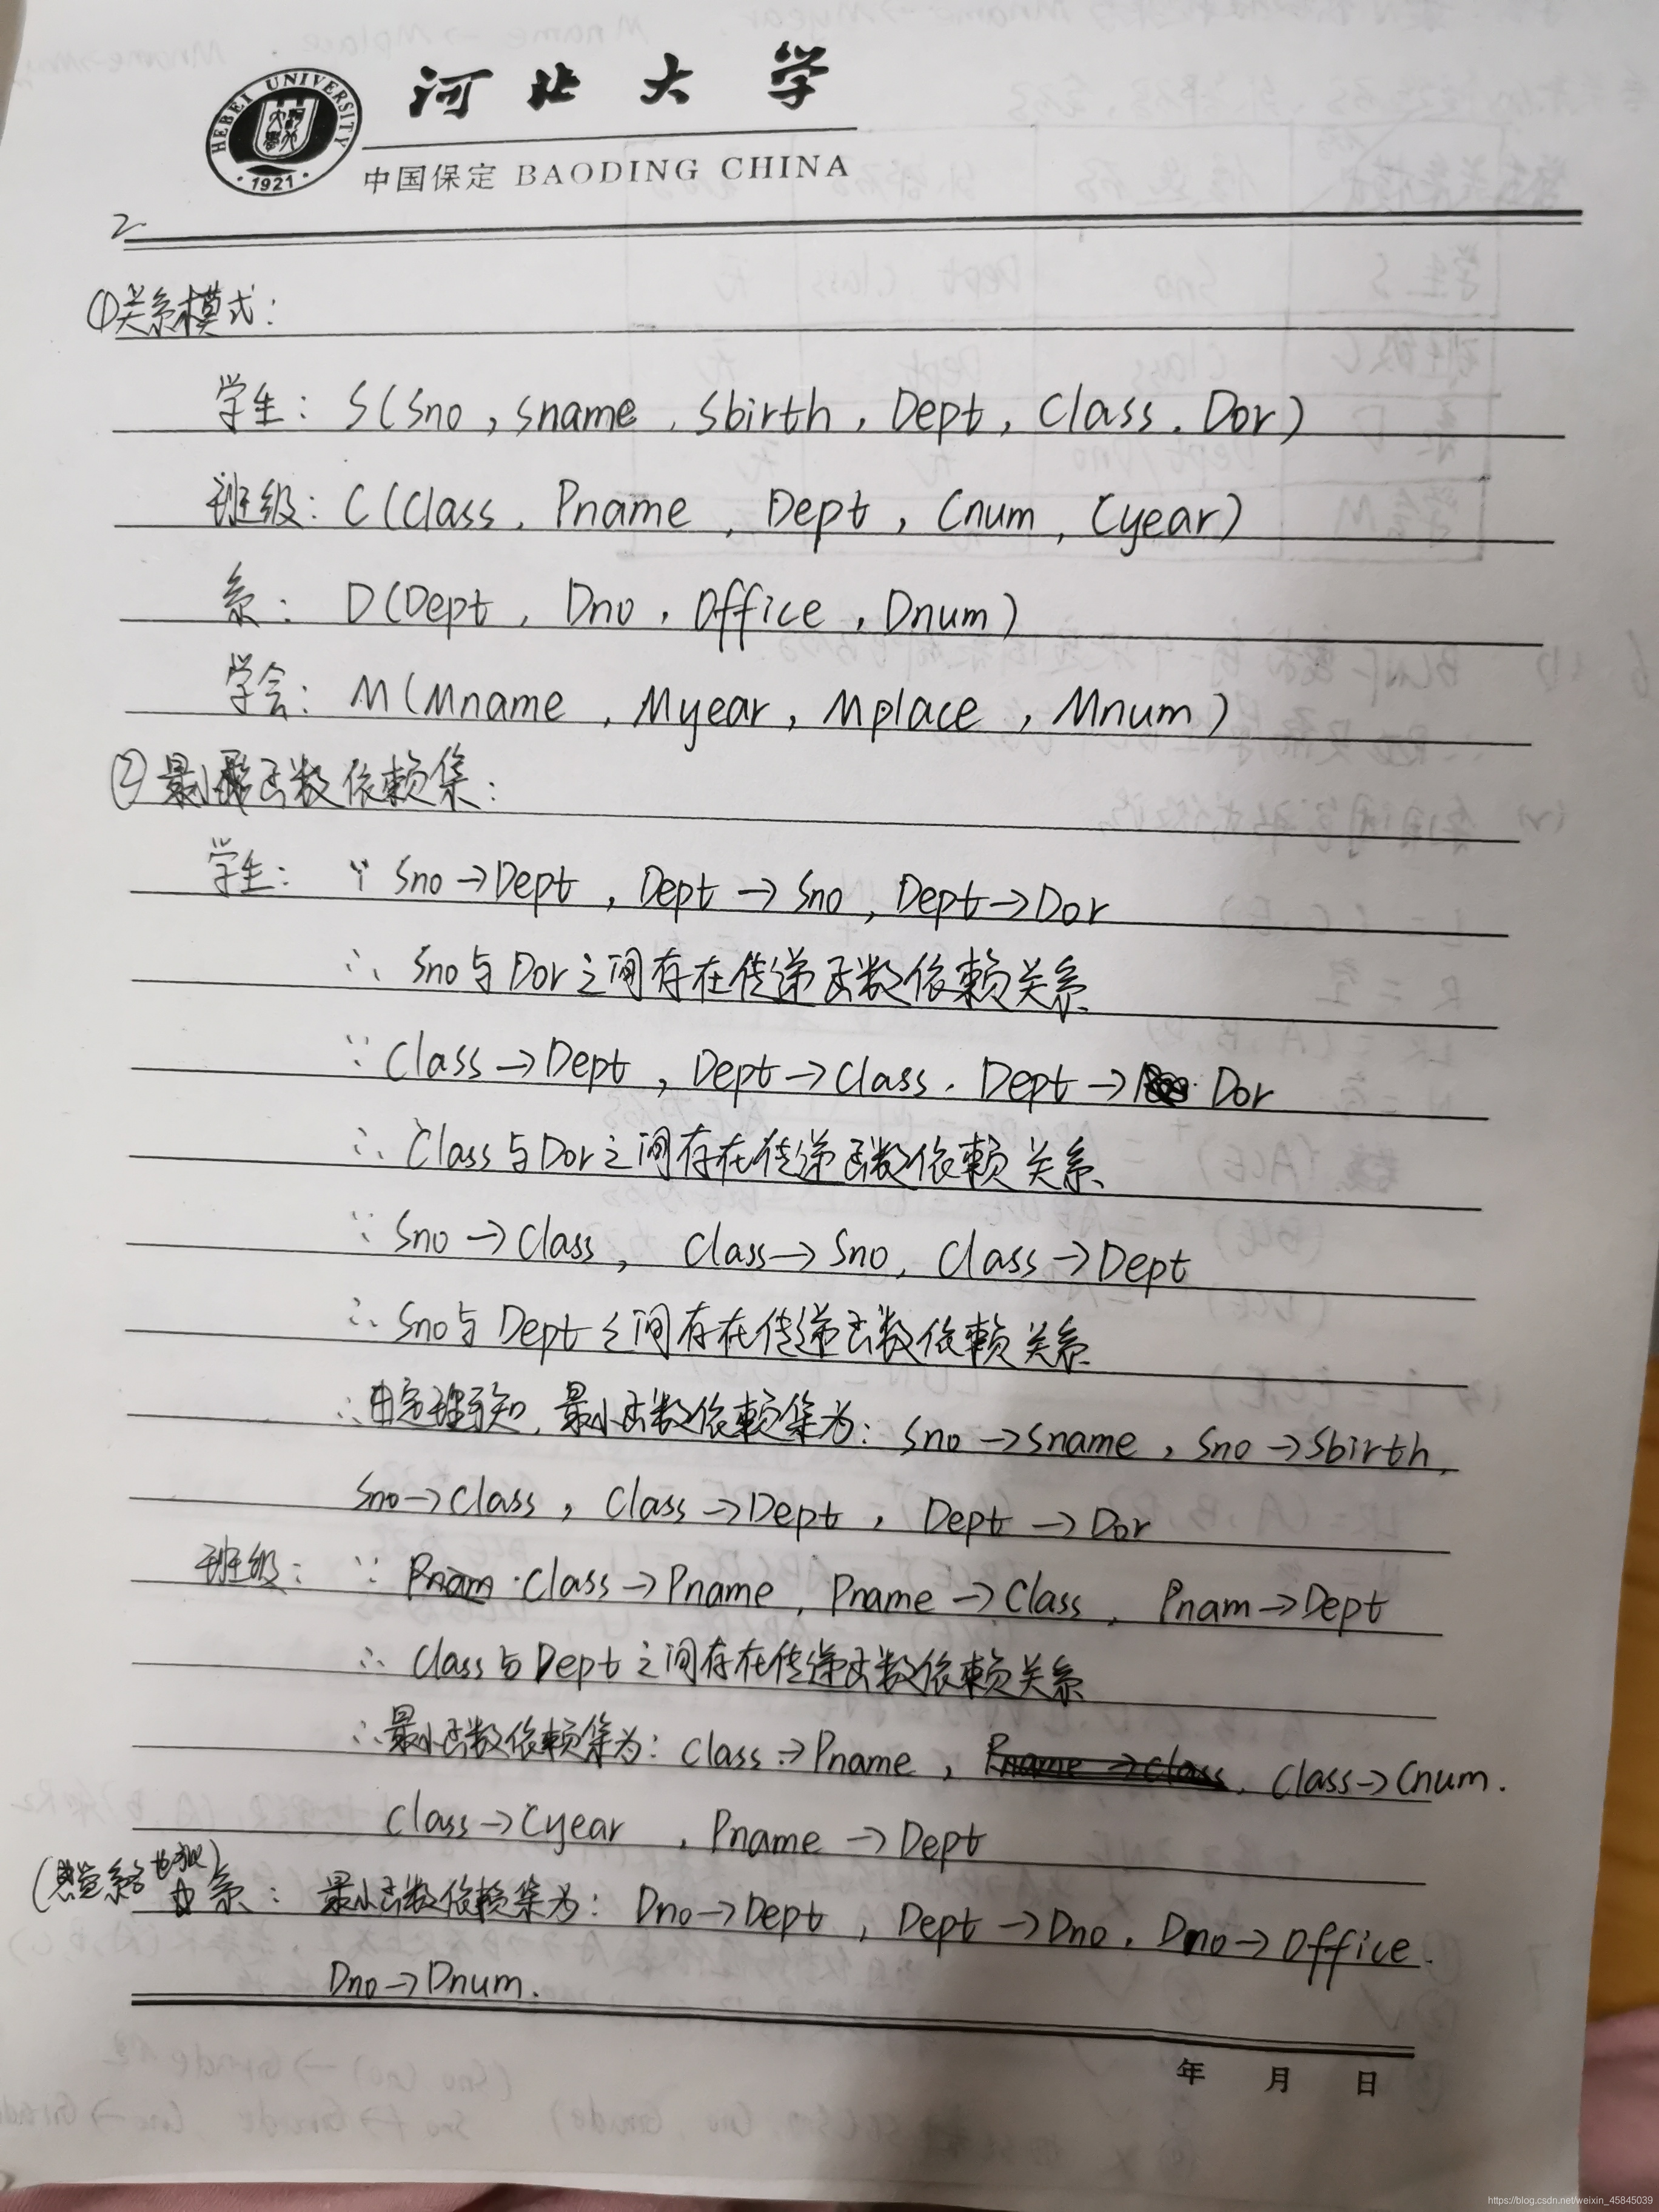 河北大学
HEBEI UNIVERSITY
·1921·
中国保定 BAODING CHINA
2
①关系模式:
学生: S(Sno, Sname, Sbirth, Dept, Class, Dor)
班级: C(Class, Pname, Dept, Cnum, Cyear)
系: D(Dept, Dno, Office, Dnum)
学会: M(Mname, Myear, Mplace, Mnum)
②最小函数依赖集:
学生: ∵ Sno→Dept, Dept→Sno, Dept→Dor
∴ Sno与Dor之间存在传递函数依赖关系
∵ Class→Dept, Dept→Class, Dept→ Dor
∴ Class与Dor之间存在传递函数依赖关系
∵ Sno→Class, Class→Sno, Class→Dept
∴ Sno与Dept之间存在传递函数依赖关系
∴由定理可知,最小函数依赖集为: Sno→Sname, Sno→Sbirth,
Sno→Class, Class→Dept, Dept→Dor
班级: ∵ Class→Pname, Pname→Class, Pnam→Dept
∴ Class与Dept之间存在传递函数依赖关系
∴最小函数依赖集为: Class→Pname, Class→Cnum.
Class→Cyear, Pname→Dept
系: 最小函数依赖集为: Dno→Dept, Dept→Dno, Dno→Office.
Dno→Dnum.
年 月 日
https://blog.csdn.net/weixin_45845039